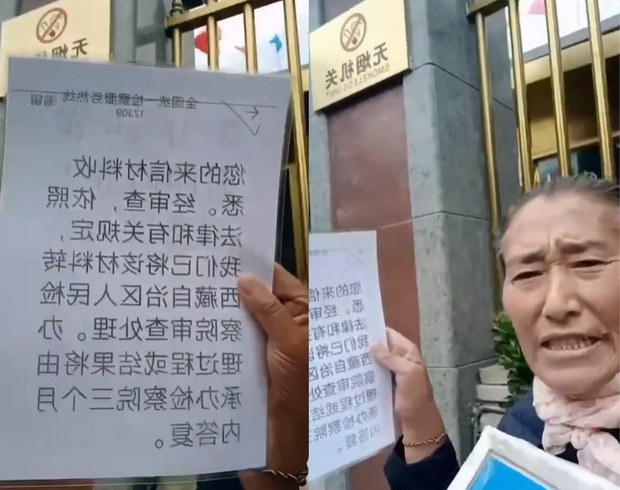 全国统一检察服务热线
12309
编辑
您的来信材料收
悉。经审查，依照
法律和有关规定，
我们已将该材料转
西藏自治区人民检
察院审查处理。办
理过程或结果将由
承办检察院三个月
内答复。
无烟机关
SMOKELESS UNIT
您的来信
悉。经审
法律和有
我们已将
西藏自治区
察院审查处
理过程或结
承办检察院
内答复。